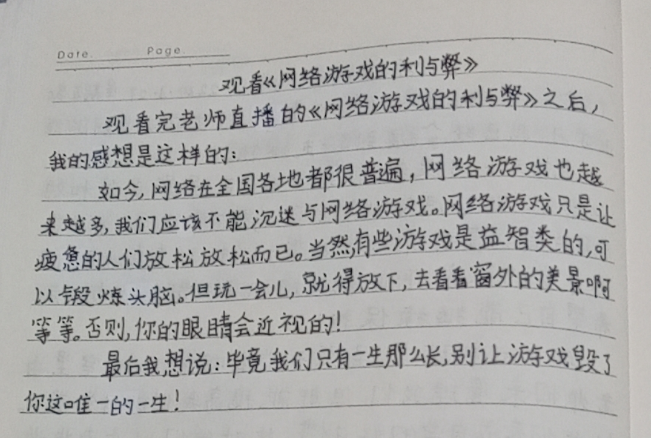 Date. Page.
观看《网络游戏的利与弊》
观看完老师直播的《网络游戏的利与弊》之后,
我的感想是这样的:
如今,网络在全国各地都很普遍,网络游戏也越
来越多,我们应该不能沉迷与网络游戏。网络游戏只是让
疲惫的人们放松放松而已。当然,有些游戏是益智类的,可
以锻炼头脑。但玩一会儿,就得放下,去看看窗外的美景啊
等等。否则,你的眼睛会近视的!
最后我想说:毕竟我们只有一生那么长,别让游戏毁了
你这唯一的一生!